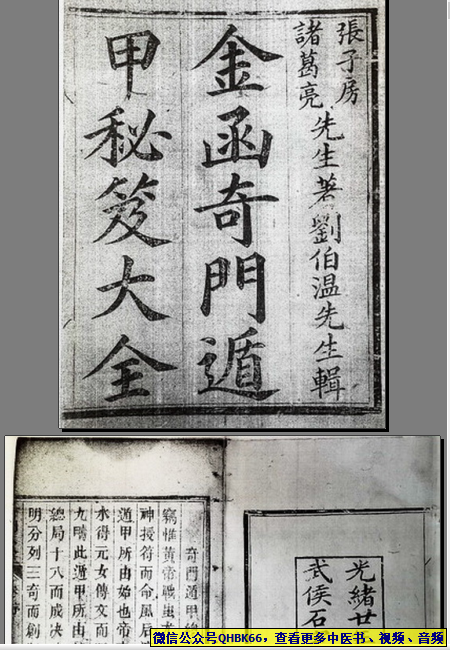 張子房
諸葛亮
先生著劉伯温先生輯
金函奇門遁
甲秘笈大全
光緒廿
武侯石
奇門遁甲總
竊惟黃帝戰蚩尤
神授符而命風后
遁甲所由始也帝
水得元女傳文而
九疇此遁甲所由
總局十八而成决
明分列三奇而創
微信公众号QHBK66，查看更多中医书、视频、音频